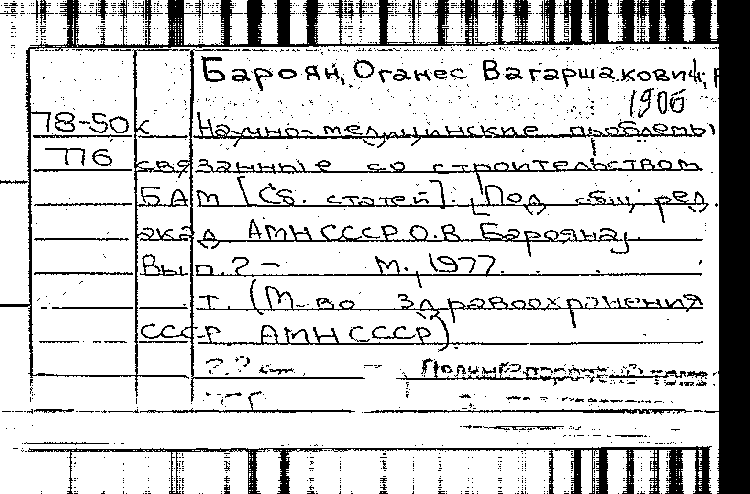 Бароян, Оганес Вагаршакович,
1906
78-50к Научно-медицинские проблемы
776 связанные со строительством
БАМ [Сб. статей]. [Под общ. ред.
акад АМН СССР О.В Бароянај
Вып. 2- М., 1977.
т. (М-во здравоохранения
СССР АМН СССР).
22 см.